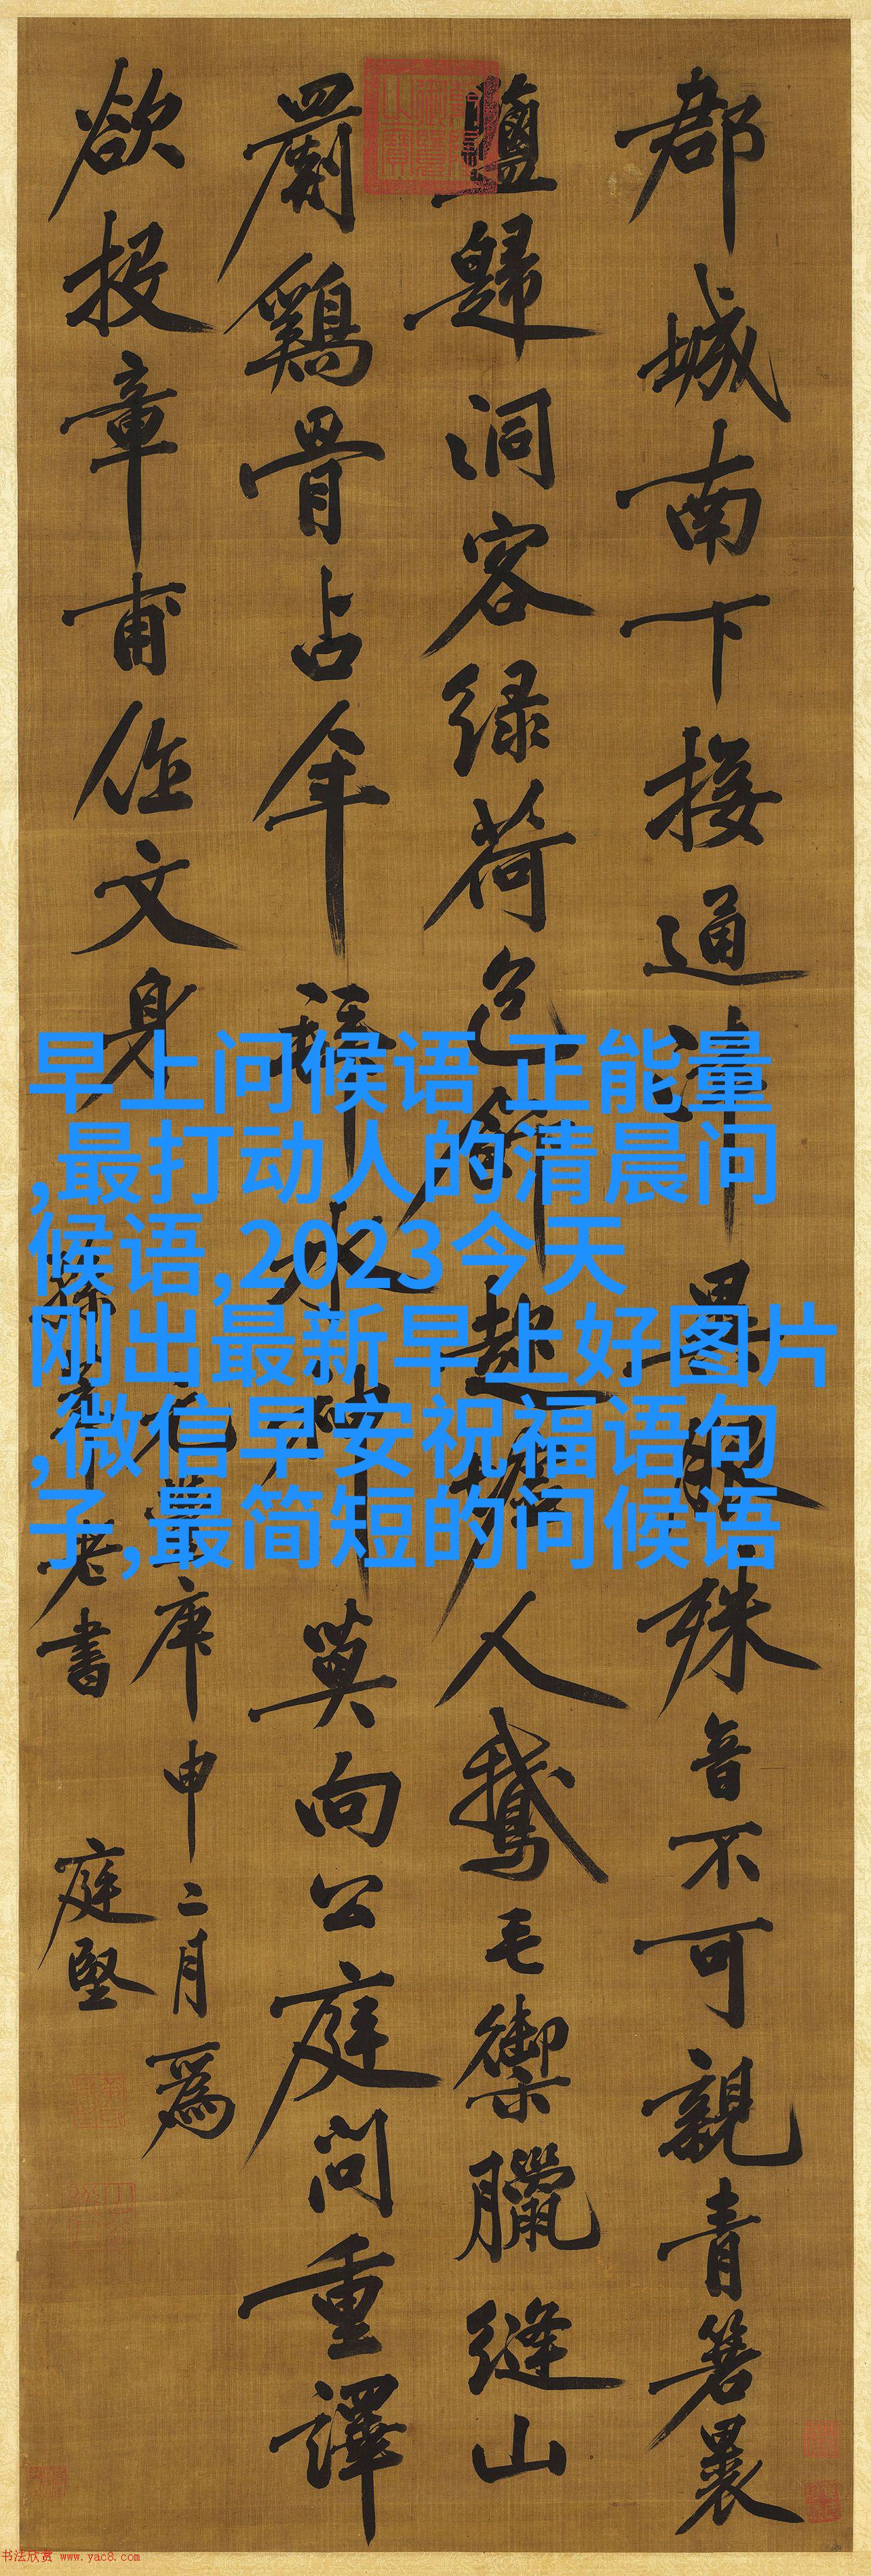 郡城南下接通津異服殊音不可親青箬裹
鹽歸洞客緑荷包飯趁墟人鵝毛禦臘縫山
罽鷄骨占年拜水神莫向公庭問重譯
欲投章甫作文身
元庚申二月爲
老書 庭堅
早上问候语 正能量
,最打动人的清晨问
候语,2023今天
刚出最新早上好图片
,微信早安祝福语句
子,最简短的问候语
书法欣赏 www.yac8.com